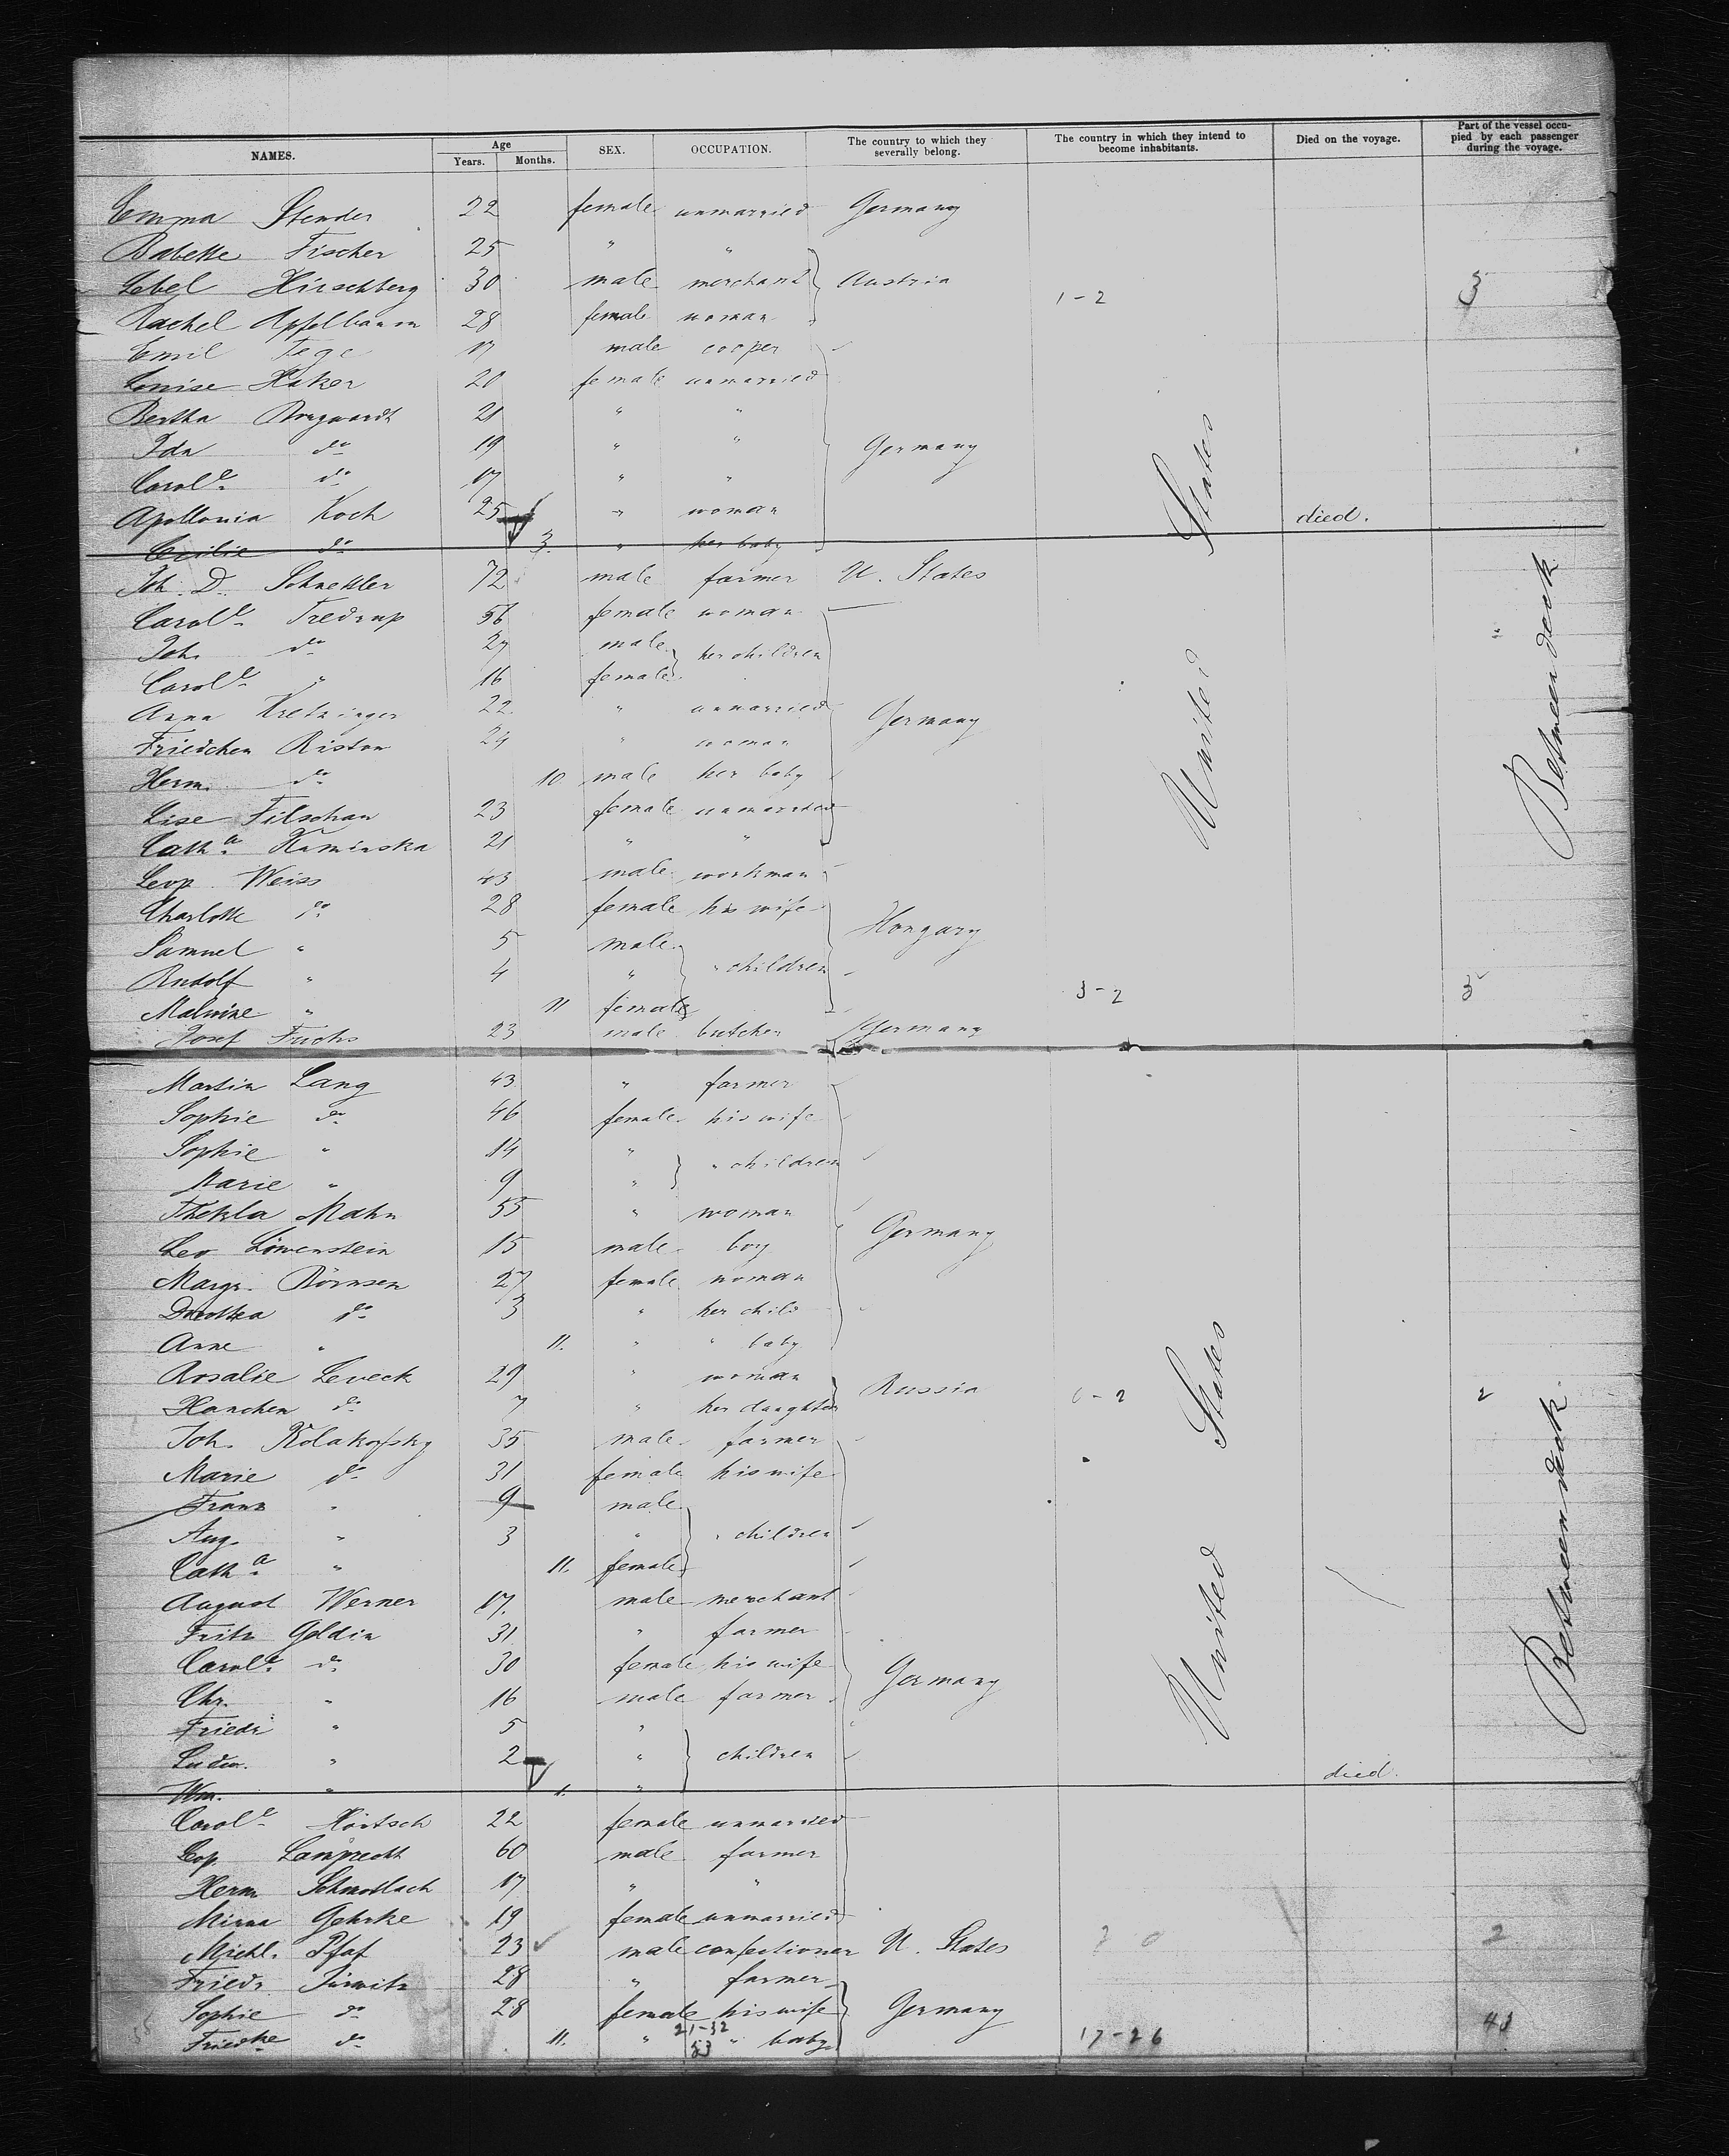 NAMES. Age Years. Months. SEX. OCCUPATION. The country to which they severally belong. The country in which they intend to become inhabitants. Died on the voyage. Part of the vessel occupied by each passenger during the voyage.
Emma Stender 22 female unmarried Germany
Babette Fischer 25 " "
Lebel Hirschberg 30 male merchant Austria 1-2 3
Rachel Apfelbaum 28 female woman
Emil Tege 17 male cooper
Louise Haker 20 female unmarried
Bertha 21 " "
Ida do 19 " " Germany
Carole do 17 " "
Apollonia Koch 25 " woman died.
Cecilie do 3. " her baby
Joh. D. Schnettler 72 male farmer U. States
Carole Tredrup 56 female woman
Joh. do 27 male her children
Carole " 16 female
Anna Kretzinger 22 " unmarried Germany
Friedchen Riston 24 " woman
Herm. do 10 male her baby
Lise Filschau 23 female unmarried
Catha Kaminska 21 " "
Leop. Weiss 43 male workman
Charlotte do 28 female his wife Hongary
Samuel " 5 male
Rudolf " 4 " " children
Malwine " 11 female 3-2 5
Josef Fuchs 23 male butcher Germany
Martin Lang 43 " farmer
Sophie do 46 female his wife
Sophie " 14 " " children
Marie " 9 "
Thekla Mahn 55 " woman
Leo Löwenstein 15 male boy Germany
Margr. Börnsen 27 female woman
Dorothea do 3 " her child
Anne " 11. " " baby
Rosalie Leveck 29 " woman Russia
Hanchen do 7 " her daughter 6-2 2
Joh. Kolakofsky 35 male farmer
Marie do 31 female his wife
Franz " 9 male
Aug. " 3 " " children
Catha " 11. female
August Werner 17. male merchant
Fritz Goldin 31 " farmer
Carole do 30 female his wife Germany
Chr. " 16 male farmer
Friedr " 5 "
Ludw. " 2 " children died.
Wm. " 1. "
Carole Hörtsch 22 female unmarried
Leop. Lamprecht 60 male farmer
Herm Schmotlach 17 " "
Minna Gehrke 19 female unmarried
Michl. Pfaf 23 male confectioner U. States 7 0 2
Friedr. 28 " farmer
Sophie do 28 female his wife Germany
21-32
Friedke do 11. " " baby 17-26 43
53
United States
Betweendeck
United States
Betweendeck